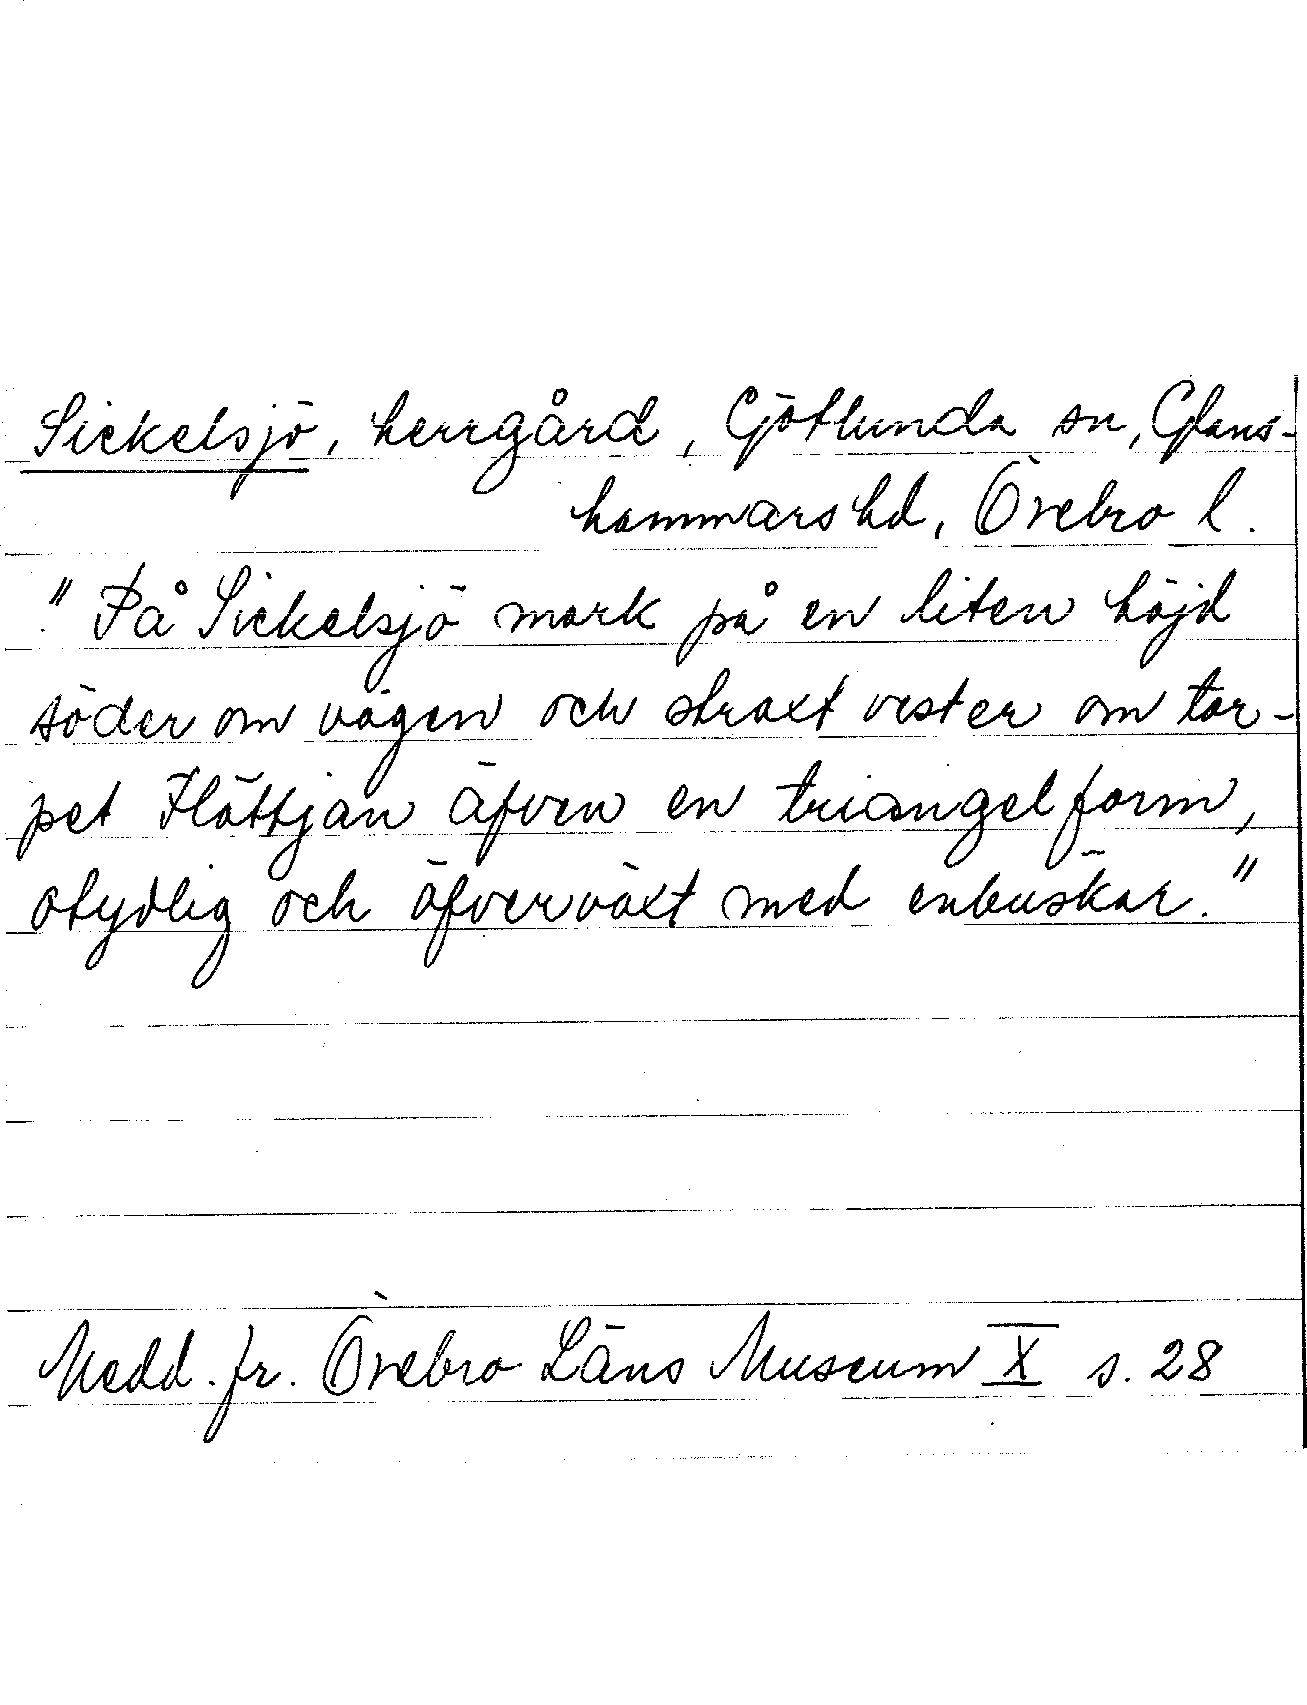 Sickelsjö, herrgård, Götlunda sn, Glans-
hammars hd, Örebro l.
"På Sickelsjö mark på en liten höjd
söder om vägen och straxt vester om tor-
pet Flöttjan äfven en triangelform,
otydlig och öfverväxt med enbuskar."
Medd. fr. Örebro Läns Museum X s. 28